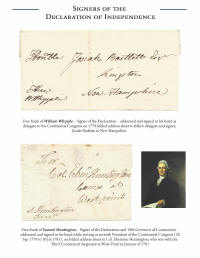 SIGNERS OF THE
DECLARATION OF INDEPENDENCE
Honble Josiah Bartlett Esqr
Kingston
Free
WWhipple
New Hampshire
Free frank of William Whipple - Signer of the Declaration - addressed and signed in his hand as
delegate to the Continental Congress on 1779 folded address sheet to fellow delegate and signer,
Josiah Bartlett in New Hampshire.
Col. Ebenr Huntington
Camp at
Westpoint
S. Huntington
Free frank of Samuel Huntington - Signer of the Declaration and 18th Governor of Connecticut -
addressed and signed in his hand while serving as seventh President of the Continental Congress (28
Sep 1779 to 10 Jul 1781), on folded address sheet to Col. Ebenezer Huntington, who was with the
Third Connecticut Regiment at West Point in January of 1781.